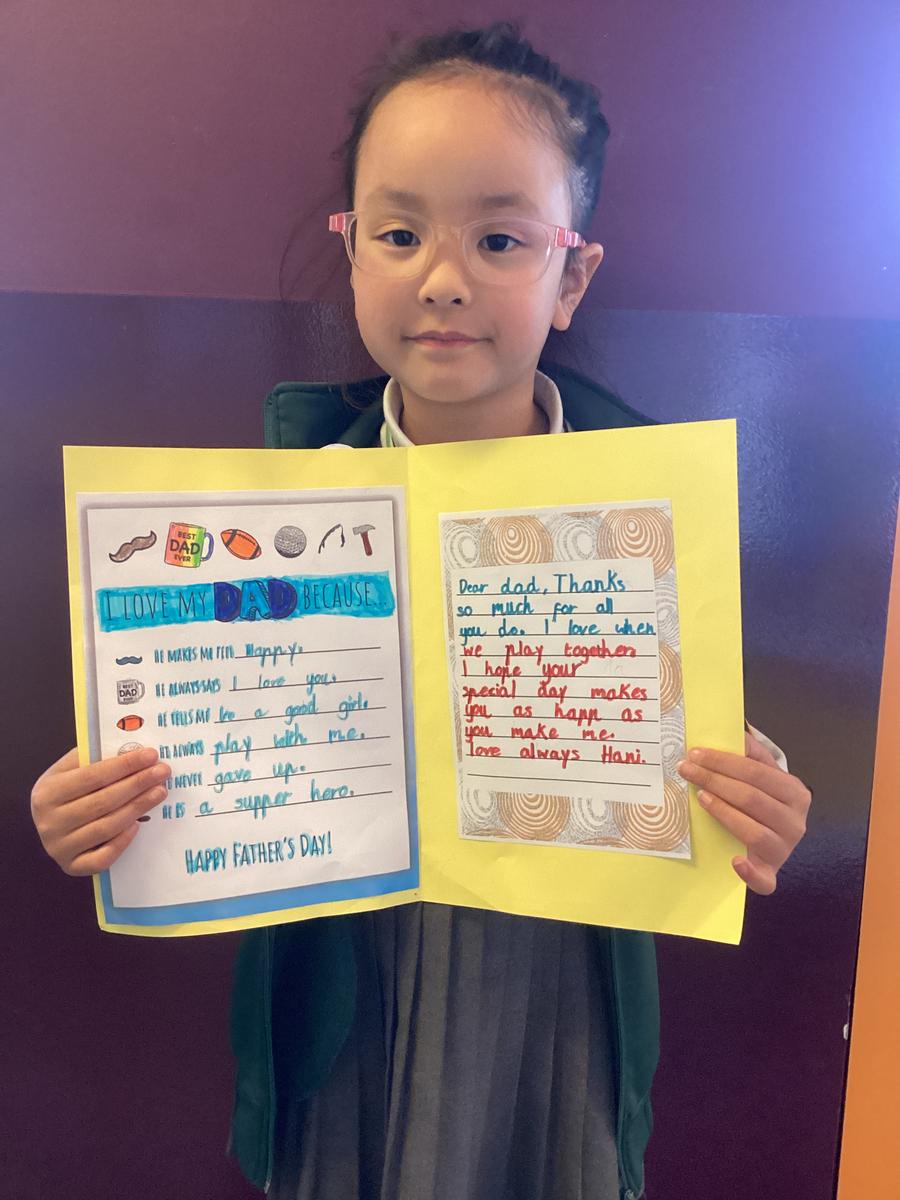 BEST
DAD
EVER
I LOVE MY DAD BECAUSE...
HE MAKES ME FEEL Happy.
HE ALWAYS SAYS I love you.
HE TELLS ME be a good girl.
HE ALWAYS play with me.
NEVER gave up.
HE IS a supper hero.
HAPPY FATHER'S DAY!
Dear dad, Thanks
so much for all
you do. I love when
we play together
I hope your
special day makes
you as happ as
you make me.
love always Hani.